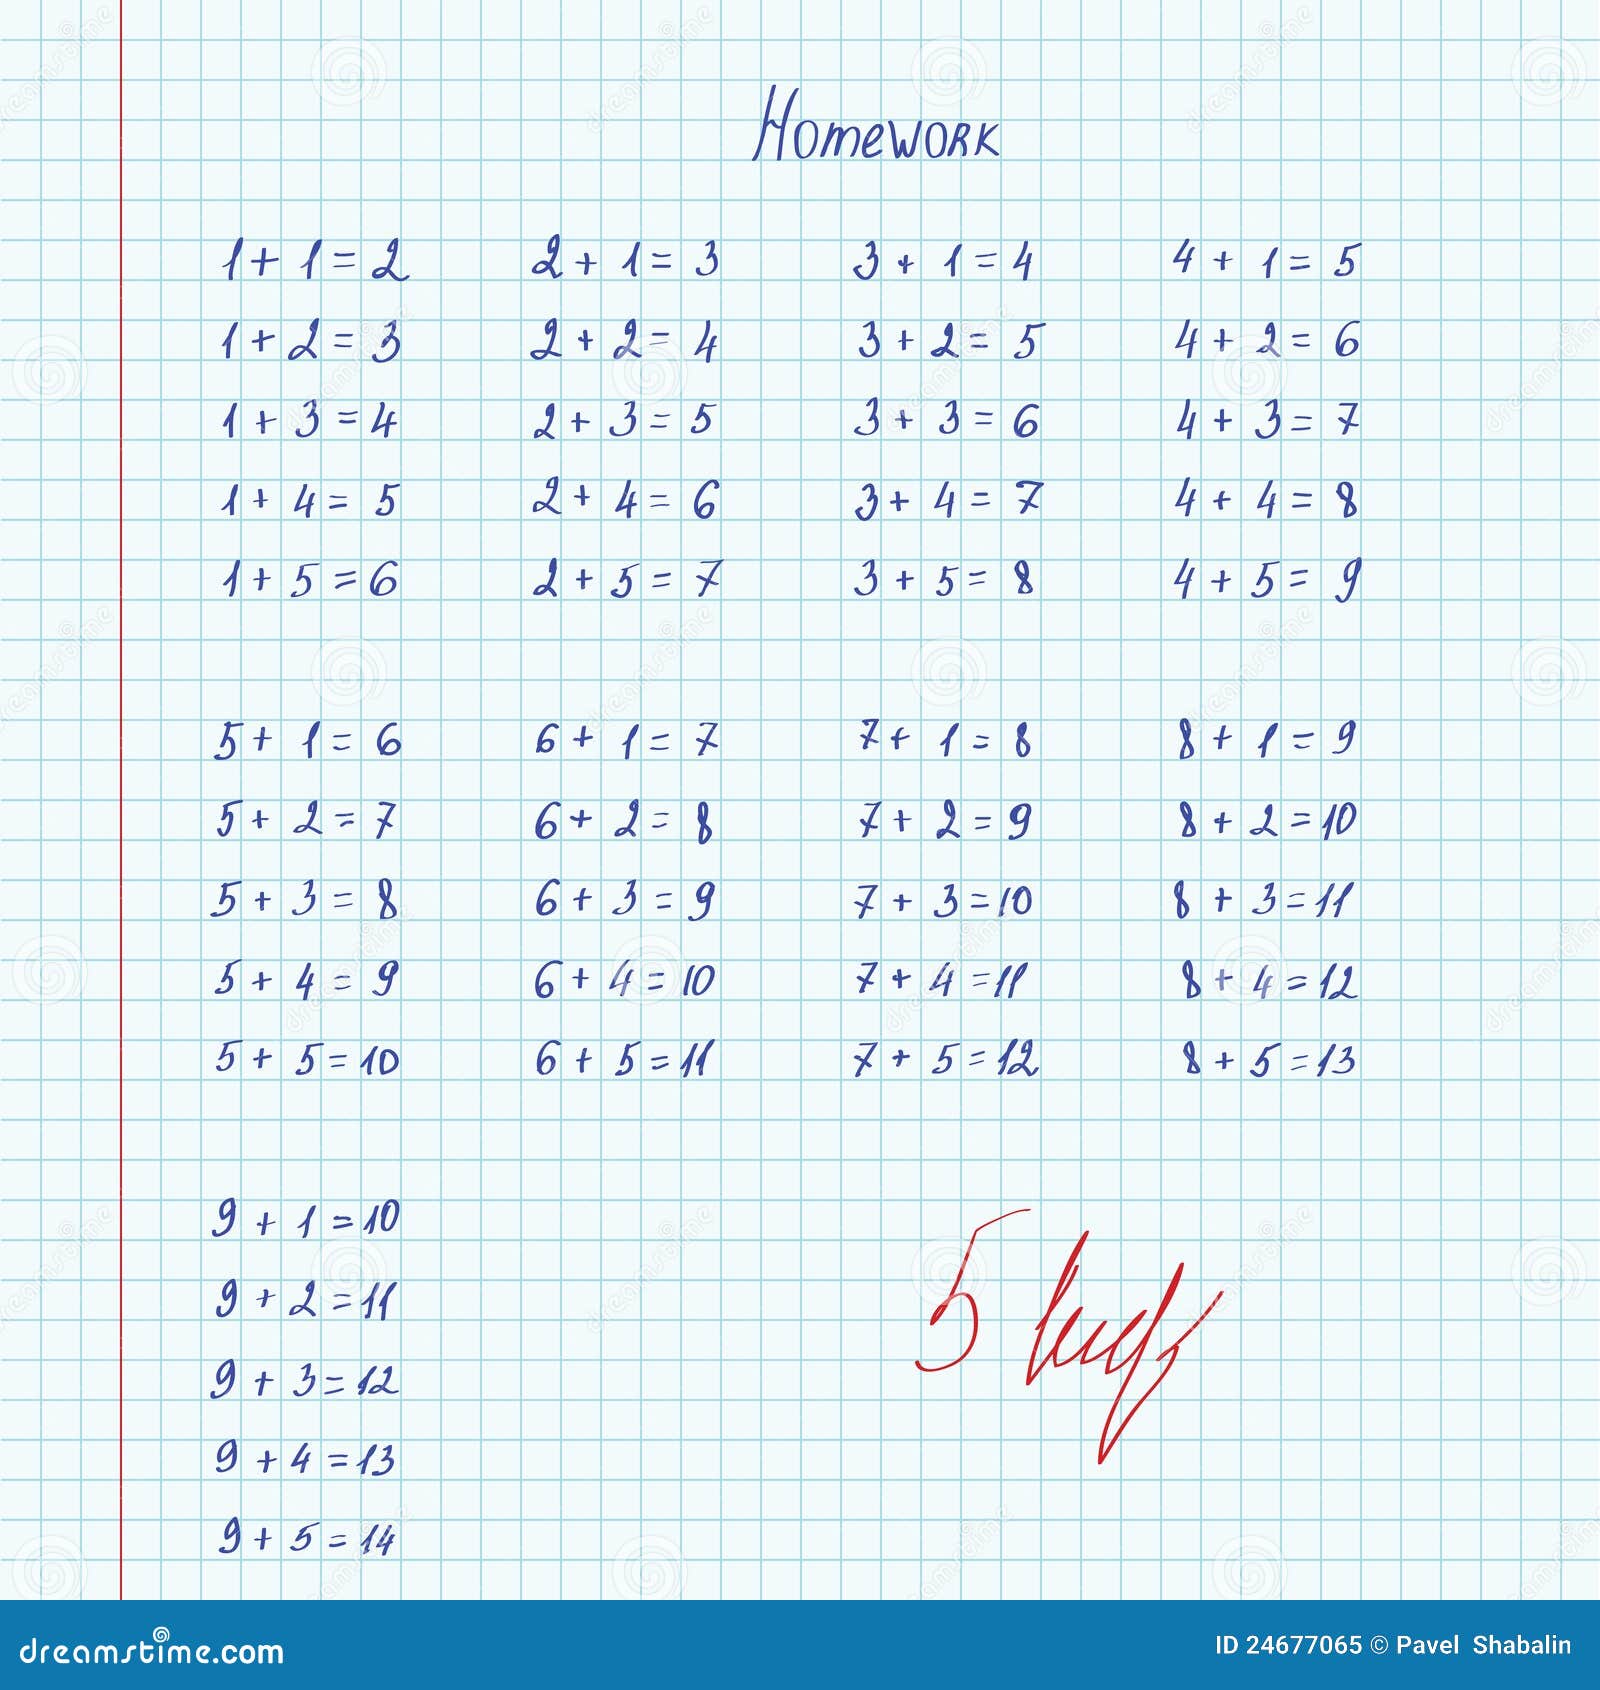 Homework
1 + 1 = 2 2 + 1 = 3 3 + 1 = 4 4 + 1 = 5
1 + 2 = 3 2 + 2 = 4 3 + 2 = 5 4 + 2 = 6
1 + 3 = 4 2 + 3 = 5 3 + 3 = 6 4 + 3 = 7
1 + 4 = 5 2 + 4 = 6 3 + 4 = 7 4 + 4 = 8
1 + 5 = 6 2 + 5 = 7 3 + 5 = 8 4 + 5 = 9
5 + 1 = 6 6 + 1 = 7 7 + 1 = 8 8 + 1 = 9
5 + 2 = 7 6 + 2 = 8 7 + 2 = 9 8 + 2 = 10
5 + 3 = 8 6 + 3 = 9 7 + 3 = 10 8 + 3 = 11
5 + 4 = 9 6 + 4 = 10 7 + 4 = 11 8 + 4 = 12
5 + 5 = 10 6 + 5 = 11 7 + 5 = 12 8 + 5 = 13
9 + 1 = 10
9 + 2 = 11
9 + 3 = 12
9 + 4 = 13
9 + 5 = 14
5
dreamstime.com ID 24677065 © Pavel Shabalin